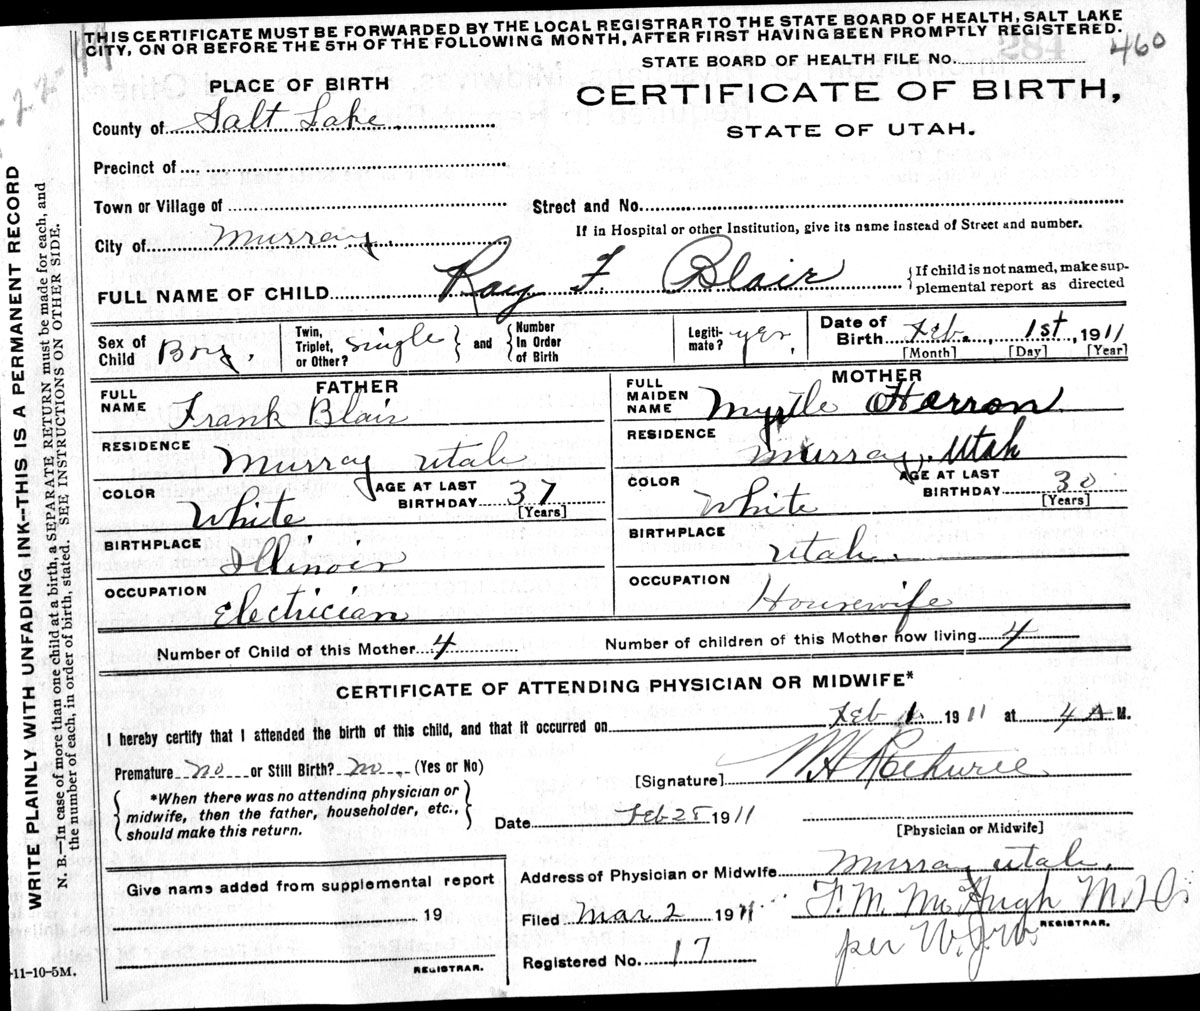 THIS CERTIFICATE MUST BE FORWARDED BY THE LOCAL REGISTRAR TO THE STATE BOARD OF HEALTH, SALT LAKE
CITY, ON OR BEFORE THE 5TH OF THE FOLLOWING MONTH, AFTER FIRST HAVING BEEN PROMPTLY REGISTERED.
460
STATE BOARD OF HEALTH FILE No.
PLACE OF BIRTH
CERTIFICATE OF BIRTH,
STATE OF UTAH.
County of Salt Lake
Precinct of
Town or Village of
Street and No.
If in Hospital or other Institution, give its name instead of Street and number.
City of Murray
FULL NAME OF CHILD Ray F. Blair
If child is not named, make sup-
plemental report as directed
Sex of Child Boy.
Twin, Triplet, or Other? single
and
Number In Order of Birth
Legiti-mate? yes,
Date of Birth Feb. 1st, 1911
[Month] [Day] [Year]
FATHER
FULL NAME Frank Blair
RESIDENCE Murray Utah
COLOR White
AGE AT LAST BIRTHDAY 37 [Years]
BIRTHPLACE Illinois
OCCUPATION Electrician
MOTHER
FULL MAIDEN NAME Myrtle Herron
RESIDENCE Murray, Utah
COLOR White
AGE AT LAST BIRTHDAY 30 [Years]
BIRTHPLACE Utah.
OCCUPATION Housewife
Number of Child of this Mother 4
Number of children of this Mother now living 4
CERTIFICATE OF ATTENDING PHYSICIAN OR MIDWIFE*
I hereby certify that I attended the birth of this child, and that it occurred on Feb 1, 1911 at 4 A M.
Premature no or Still Birth? no, (Yes or No)
[Signature]
*When there was no attending physician or
midwife, then the father, householder, etc.,
should make this return.
Date Feb 28 1911
[Physician or Midwife]
Give name added from supplemental report
19
REGISTRAR.
Address of Physician or Midwife Murray Utah.
Filed Mar 2 1911
F. M. McHugh
REGISTRAR.
per W.J.W.
Registered No. 17
-11-10-5M.
WRITE PLAINLY WITH UNFADING INK--THIS IS A PERMANENT RECORD
N. B.—In case of more than one child at a birth, a SEPARATE RETURN must be made for each, and
the number of each, in order of birth, stated. SEE INSTRUCTIONS ON OTHER SIDE.